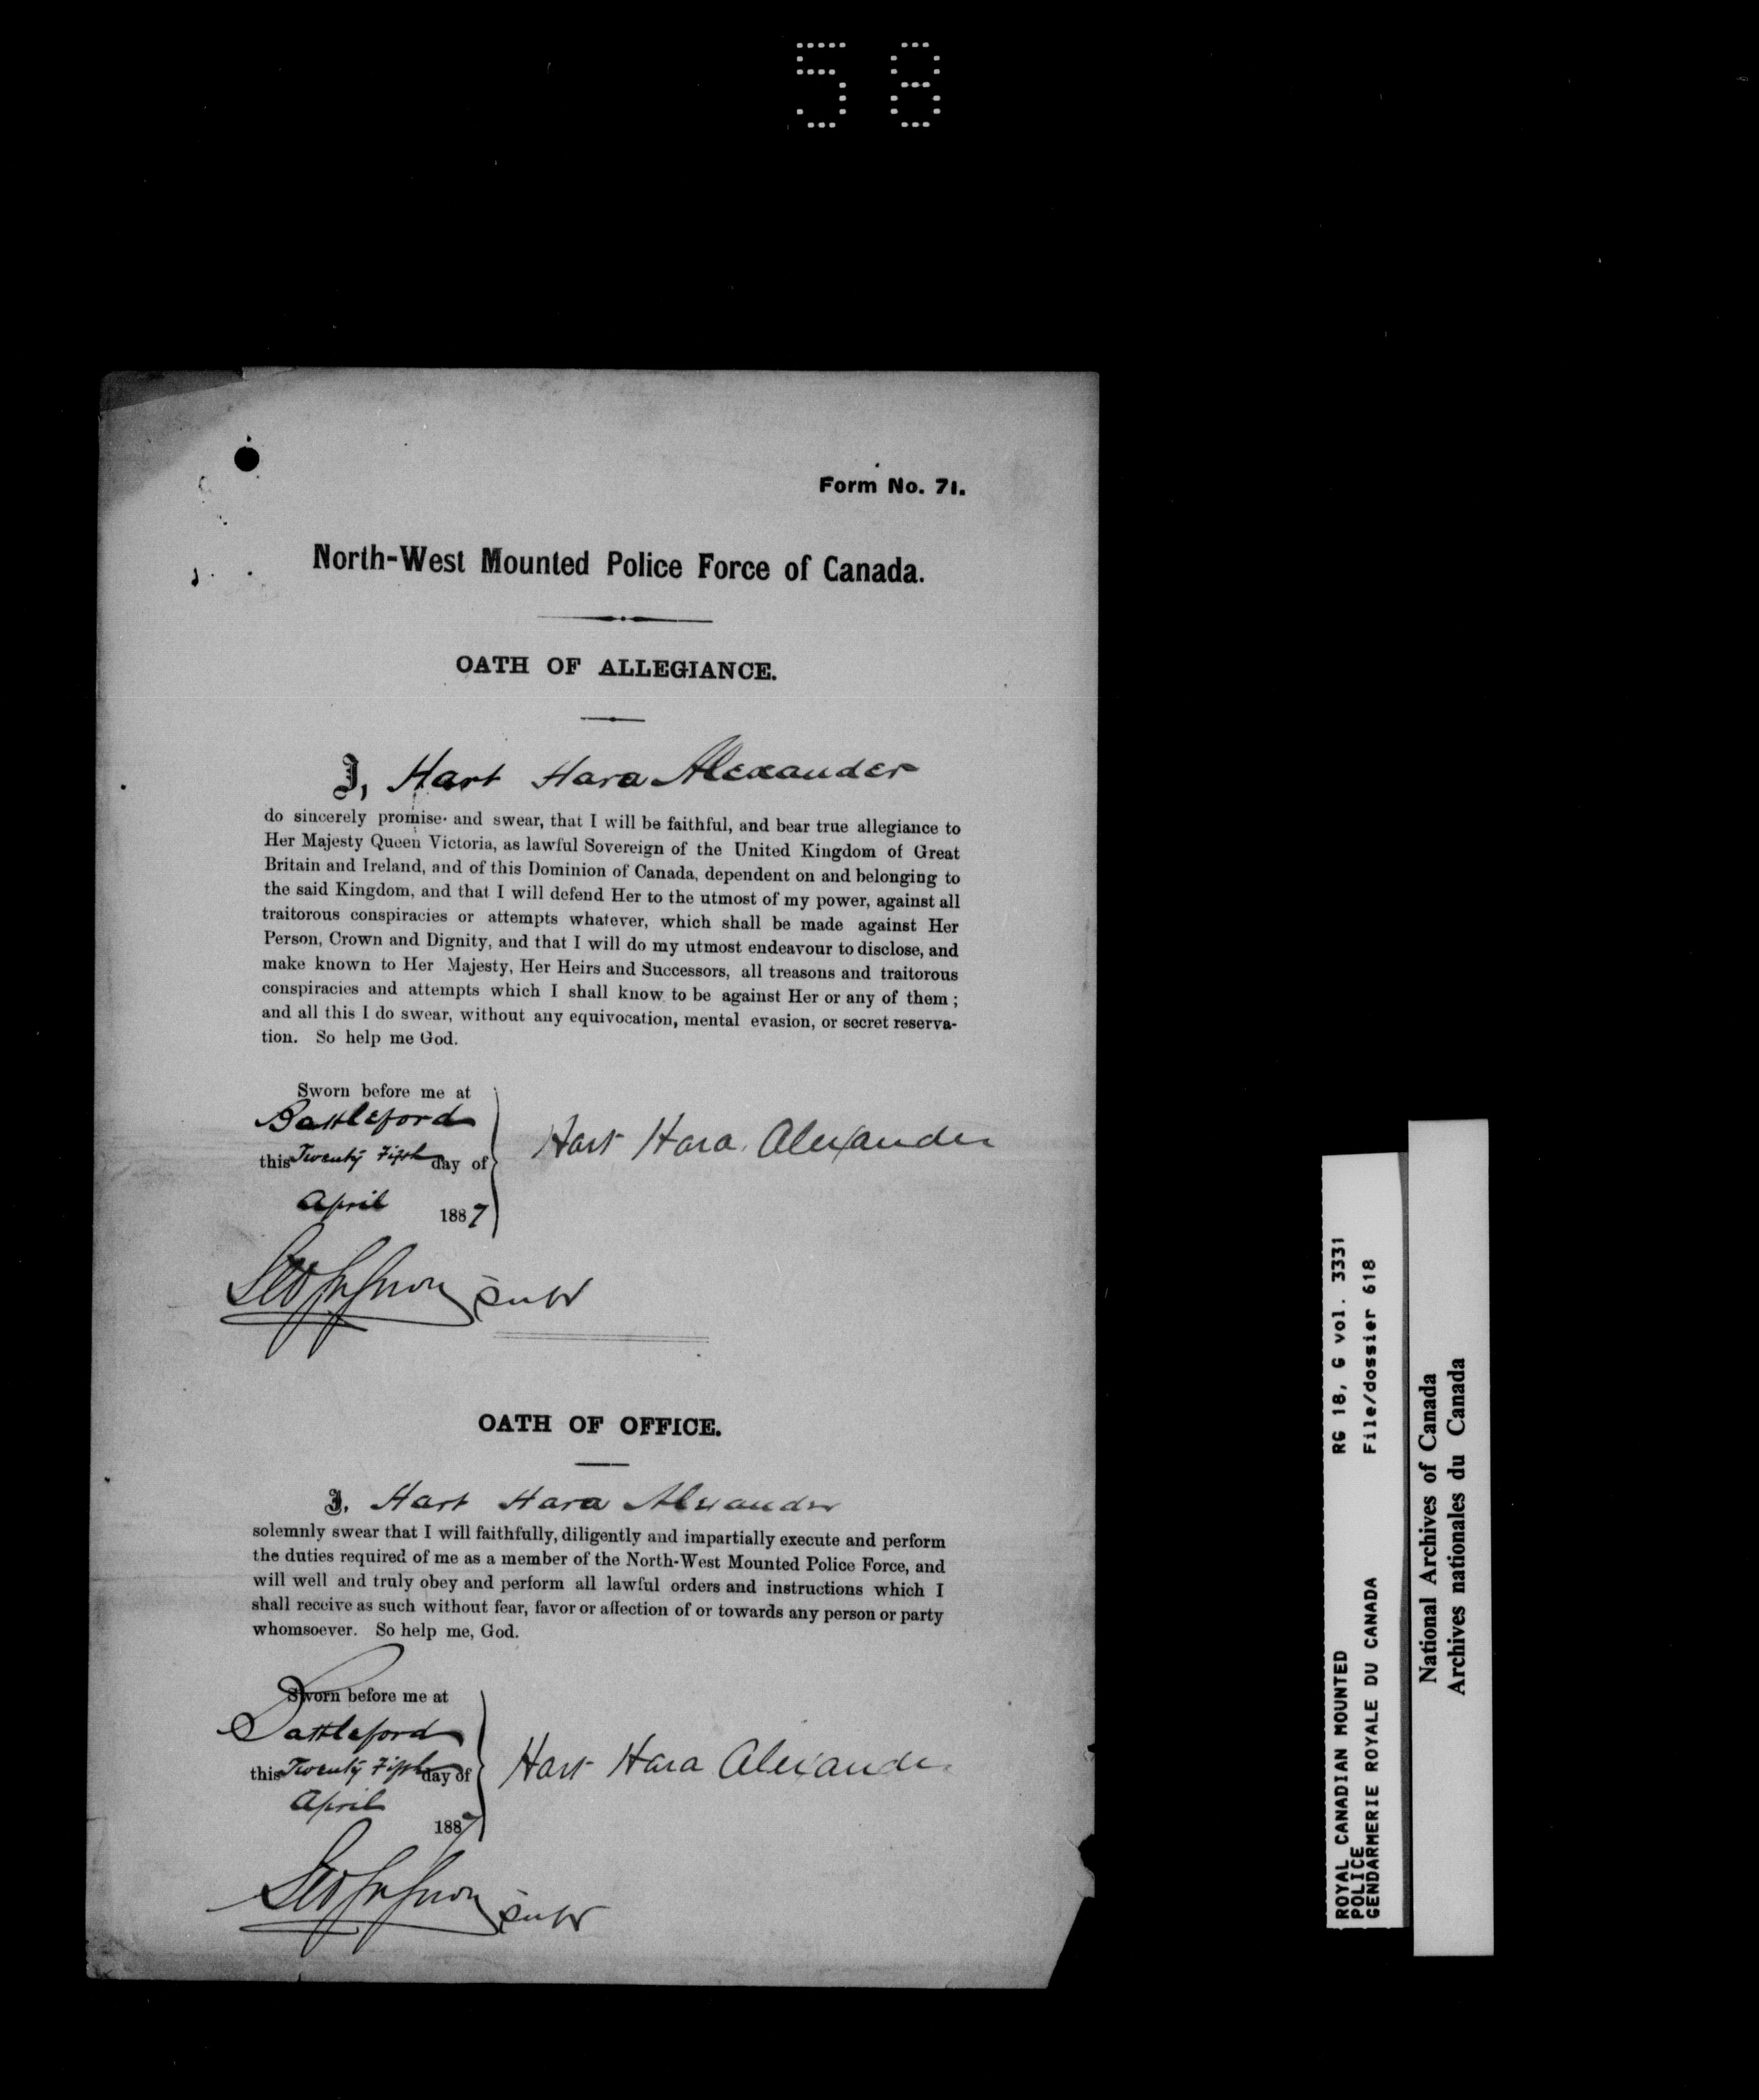 58
Form No. 71.
North-West Mounted Police Force of Canada.
OATH OF ALLEGIANCE.
I, Hart Hara Alexander
do sincerely promise and swear, that I will be faithful, and bear true allegiance to
Her Majesty Queen Victoria, as lawful Sovereign of the United Kingdom of Great
Britain and Ireland, and of this Dominion of Canada, dependent on and belonging to
the said Kingdom, and that I will defend Her to the utmost of my power, against all
traitorous conspiracies or attempts whatever, which shall be made against Her
Person, Crown and Dignity, and that I will do my utmost endeavour to disclose, and
make known to Her Majesty, Her Heirs and Successors, all treasons and traitorous
conspiracies and attempts which I shall know to be against Her or any of them ;
and all this I do swear, without any equivocation, mental evasion, or secret reserva-
tion. So help me God.
Sworn before me at
Battleford
this Twenty Fifth day of
April 1887
Hart Hara Alexander
Supt
OATH OF OFFICE.
I, Hart Hara Alexander
solemnly swear that I will faithfully, diligently and impartially execute and perform
the duties required of me as a member of the North-West Mounted Police Force, and
will well and truly obey and perform all lawful orders and instructions which I
shall receive as such without fear, favor or affection of or towards any person or party
whomsoever. So help me, God.
Sworn before me at
Battleford
this Twenty Fifth day of
April
1887
Hart Hara Alexander
Supt
ROYAL CANADIAN MOUNTED
POLICE
GENDARMERIE ROYALE DU CANADA
RG 18, G vol. 3331
File/dossier 618
National Archives of Canada
Archives nationales du Canada